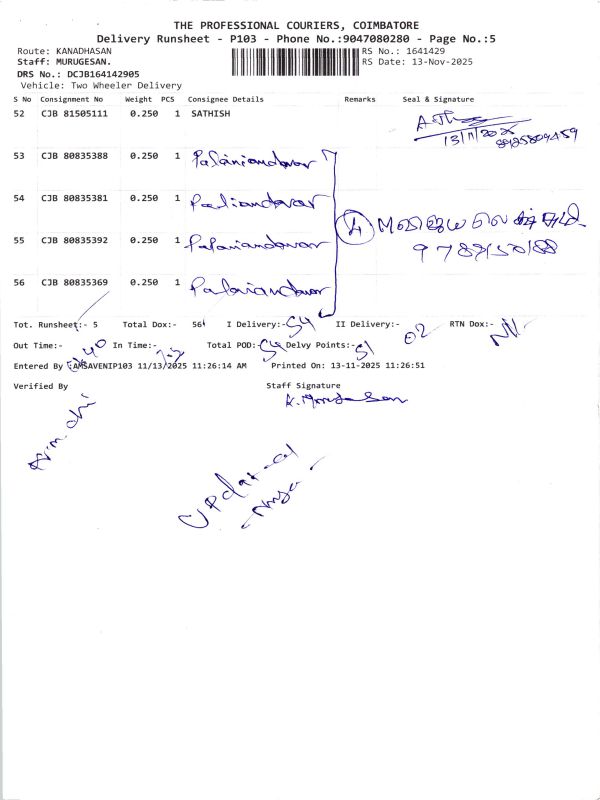 THE PROFESSIONAL COURIERS, COIMBATORE
Delivery Runsheet - P103 - Phone No.:9047080280 - Page No.:5
Route: KANADHASAN RS No.: 1641429
Staff: MURUGESAN. RS Date: 13-Nov-2025
DRS No.: DCJB164142905
Vehicle: Two Wheeler Delivery
S No Consignment No Weight PCS Consignee Details Remarks Seal & Signature
52 CJB 81505111 0.250 1 SATHISH
13/11/2025
53 CJB 80835388 0.250 1 Palaniandavar
54 CJB 80835381 0.250 1 Palaniandavar
4
55 CJB 80835392 0.250 1 Palaniandavar
56 CJB 80835369 0.250 1 Palaniandavar
Tot. Runsheet:- 5 Total Dox:- 56 I Delivery:- 54 II Delivery:- 02 RTN Dox:- Nil
Out Time:- In Time:- Total POD: 54 Delvy Points:- 51
Entered By :AMSAVENIP103 11/13/2025 11:26:14 AM Printed On: 13-11-2025 11:26:51
Verified By Staff Signature